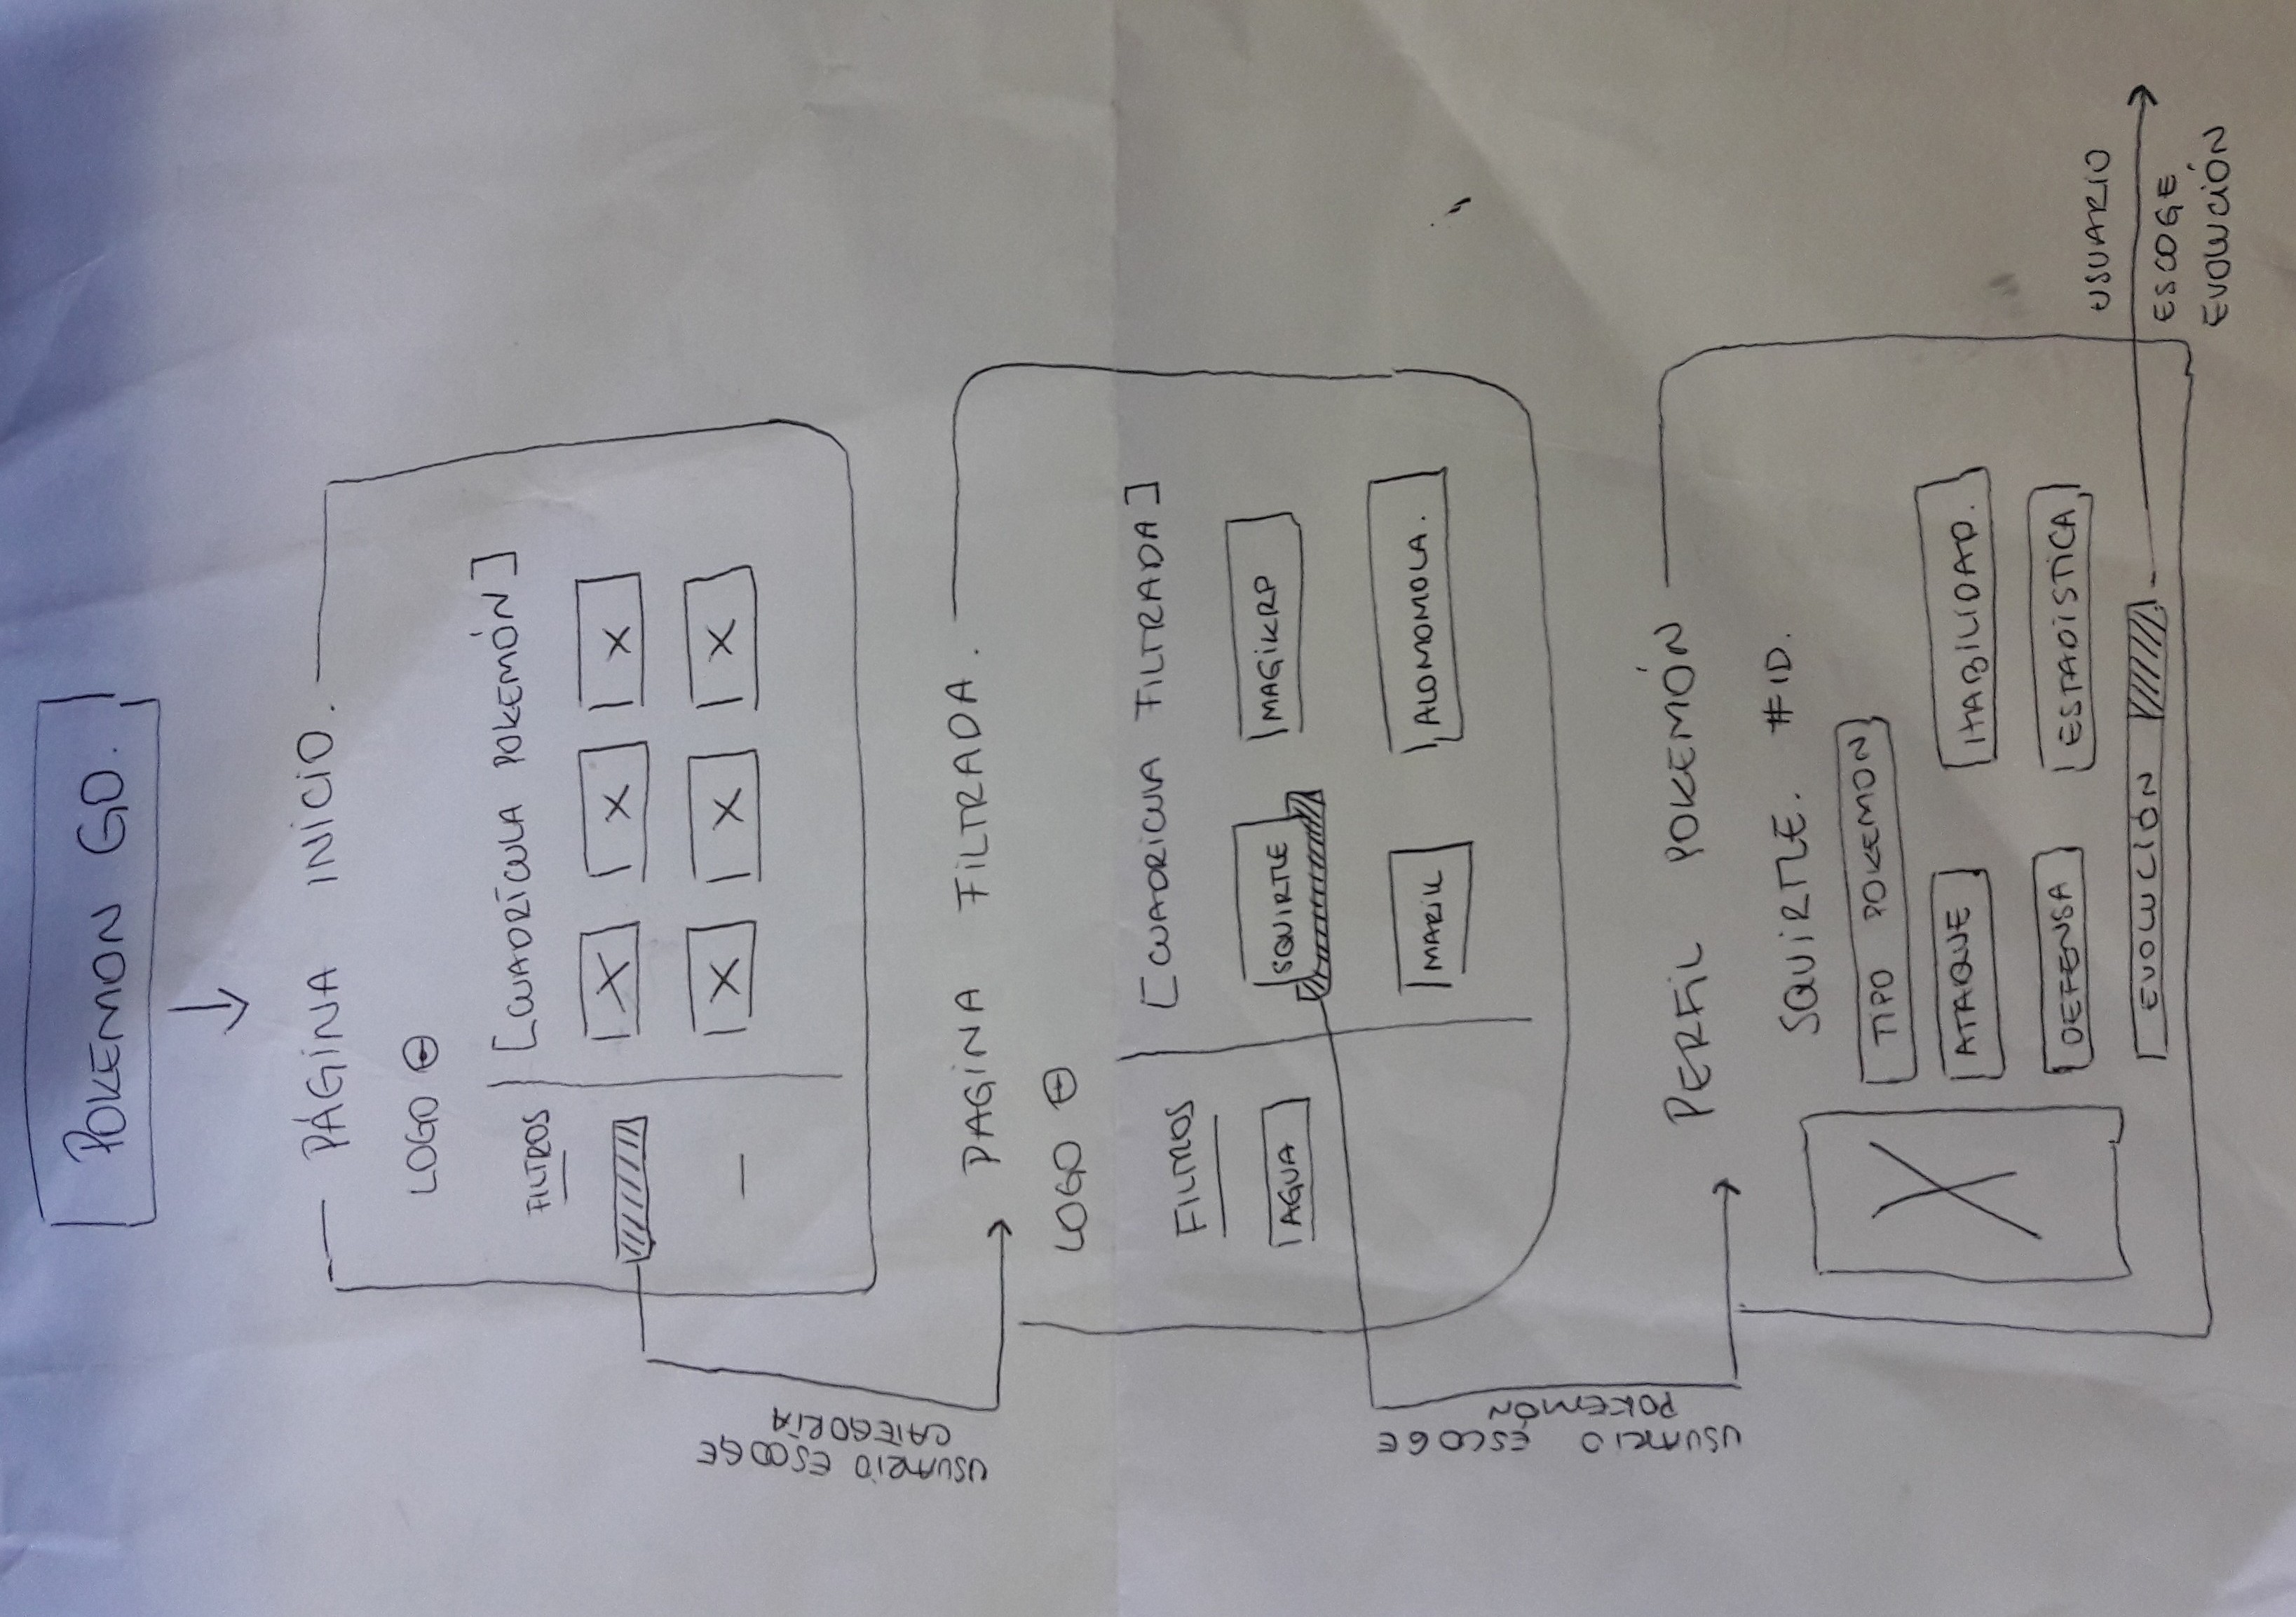 POKEMON GO.
PÁGINA INICIO.
LOGO
FILTROS
[CUADRÍCULA POKEMÓN]
X X X
X X X
USUARIO ESCOGE
CATEGORÍA
PAGINA FILTRADA.
LOGO
FILTROS
[CUADRICULA FILTRADA]
AGUA
SQUIRTLE
MAGIKRP
MARILL
ALOMOMOLA.
USUARIO ESCOGE
POKEMÓN
PERFIL POKEMÓN
SQUIRTLE. #ID.
X
TIPO POKEMON
ATAQUE
HABILIDAD.
DEFENSA
ESTADÍSTICA
EVOLUCIÓN
USUARIO
ESCOGE
EVOLUCIÓN